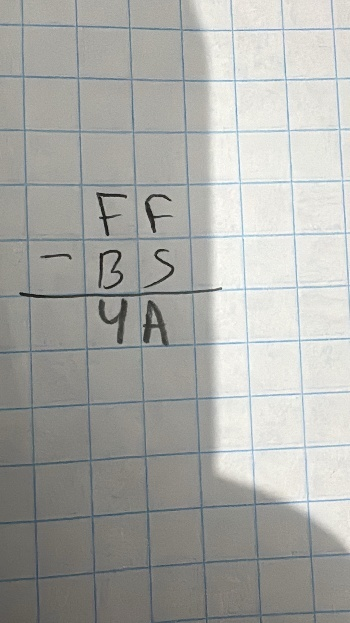 FF
- B5
4A